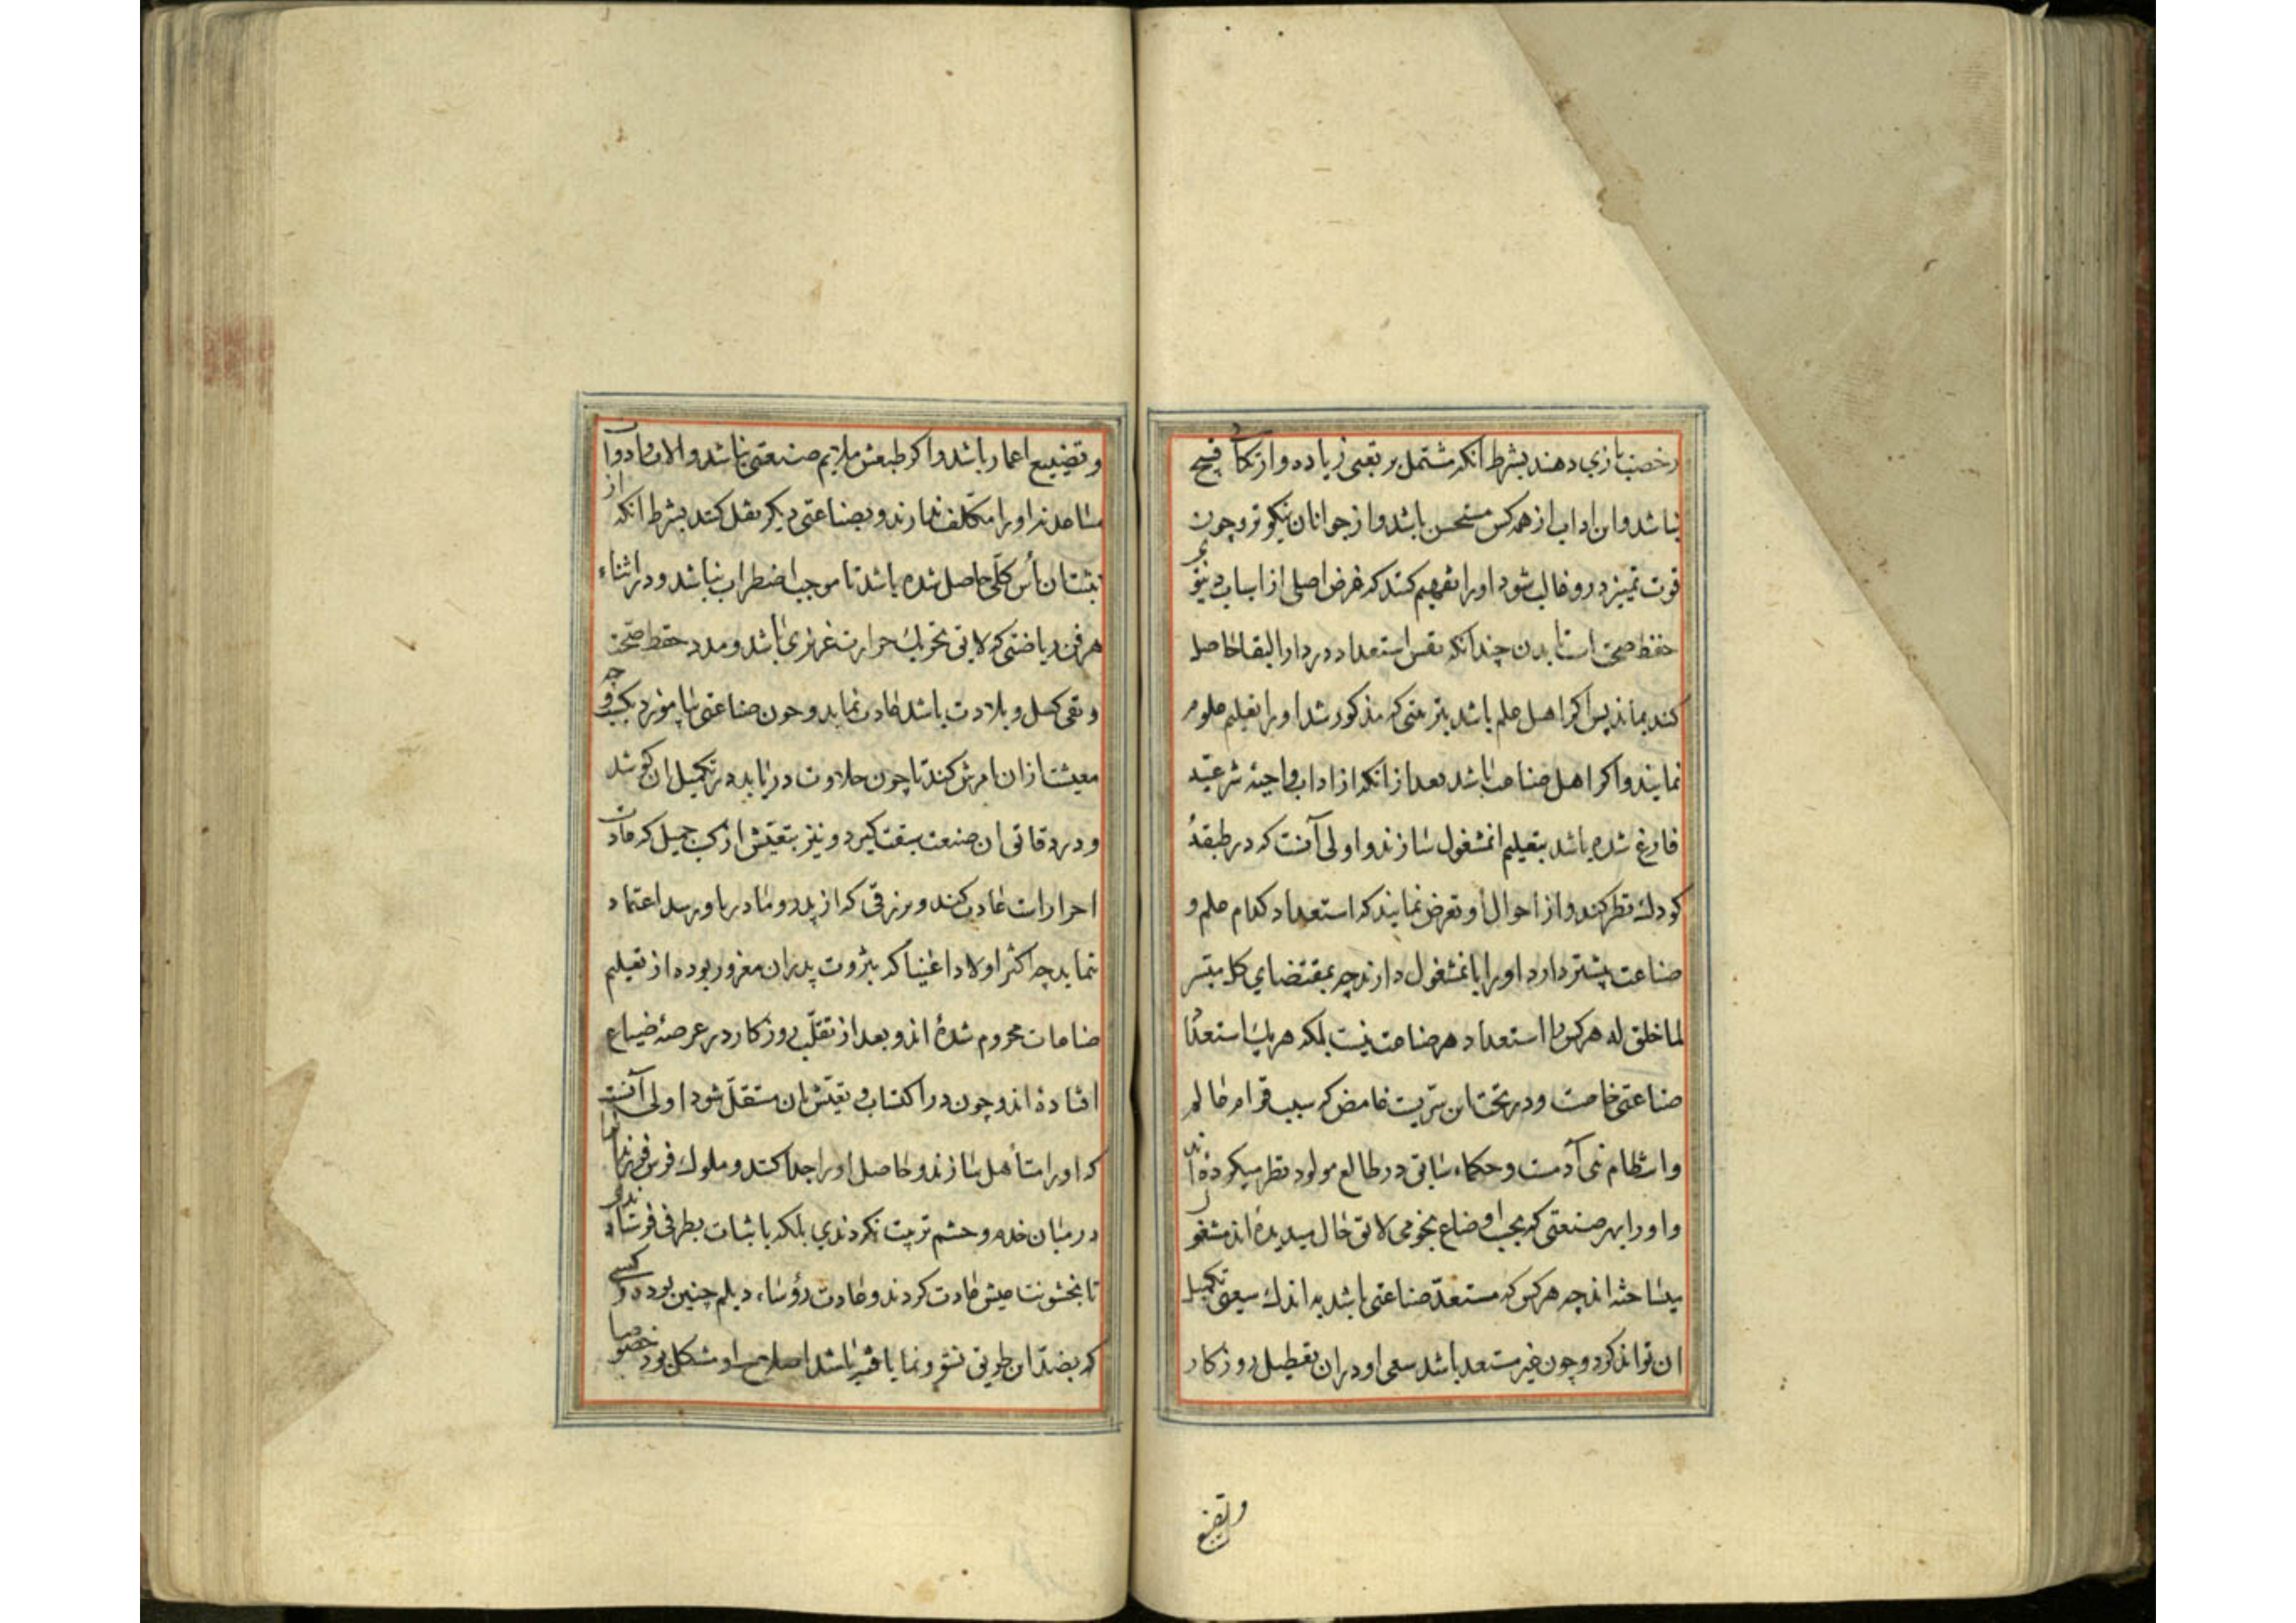 رخصت بازی دهند بشرط انکه مشتمل بر تعبی زیاده و ارتکاب قبیح
نباشد و این اداب از همه کس مستحسن باشد و از جوانان نیکوتر و چون
قوت تمییز درو غالب شود او را تفهیم کنند که غرض اصلی از اسباب دنیوی
حفظ صحت است تا بدن چندانکه نفس استعداد دار البقا حاصل
کند بماند پس اکر اهل علم باشد بترتیبی که مذکور شد او را تعلیم علوم
نمایند و اکر اهل صناعت باشد بعد از انکه از اداب واجبه شرعیه
فارغ شده باشد بتعلیم ان مشغول سازند و اولی آنست که در طبقهٔ
کودک نظر کنند و از احوال او تعرض نمایند که استعداد کدام علم و
صناعت بیشتر دارد او را بان مشغول دارند چه بمقتضای کل میسر
لما خلق له هر کس را استعداد هر صناعت نیست بلکه هر یک را استعداد
صناعتی خاصت و در تحت این سریست غامض که سبب قوام عالم
و انتظام بنی آدمست و حکماء سابق در طالع مولود نظر میکرده اند
و او را بهر صنعتی که بحسب اوضاع نجومی لایق حال میدیده اند مشغول
میساخته اند چه هر کس که مستعد صناعتی باشد به اندک سعی تکمیل
ان تواند کرد و چون غیر مستعد باشد سعی او در ان تعطیل روزکار
و تضییع
و تضییع اعمار باشد و اکر طبعش ملایم صنعتی نباشد و الات و ادوات
مساعد نه او را مکلف ندارند و بصناعتی دیکر نقل کنند بشرط انکه از
تشبث بان یأس کلی حاصل شده باشد تا موجب اضطراب نباشد و در اثناء
هر فن ریاضتی که لایق تحریک حرارت غریزی باشد و مدد حفظ صحت
و نفی کسل و بلادت باشد عادت نماید و چون صناعتی بیاموزد بکسب وجه
معیشت از ان امرش کنند تا چون حلاوت دریابد در تکمیل ان کوشد
و در دقائق ان صنعت سبقت کیرد و نیز بتعیش از کسب جمیل که عادت
احرارات عادت کند و بر رزقی که از پدر و مادر باو رسد اعتماد
ننماید چه اکثر اولاد اغنیا که بثروت پدران مغرور بوده از تعلیم
صناعات محروم شده اند و بعد از تقلب روزکار در عرصهٔ ضیاع
افتاده اند و چون در اکتساب و تعیش بان مستقل شود اولی آنست
که او را متأهل سازند و حاصل او را جدا کنند و ملوک فرس فرزندان را
در میان خدم و حشم تربیت نکردندی بلکه با ثقات بطرفی فرستادندی
تا بخشونت عیش عادت کردند و عادت رؤساء دیلم چنین بوده و کسی
که بضد این طریق نشو و نما یافته باشد اصلاح او مشکل بود خصوصا